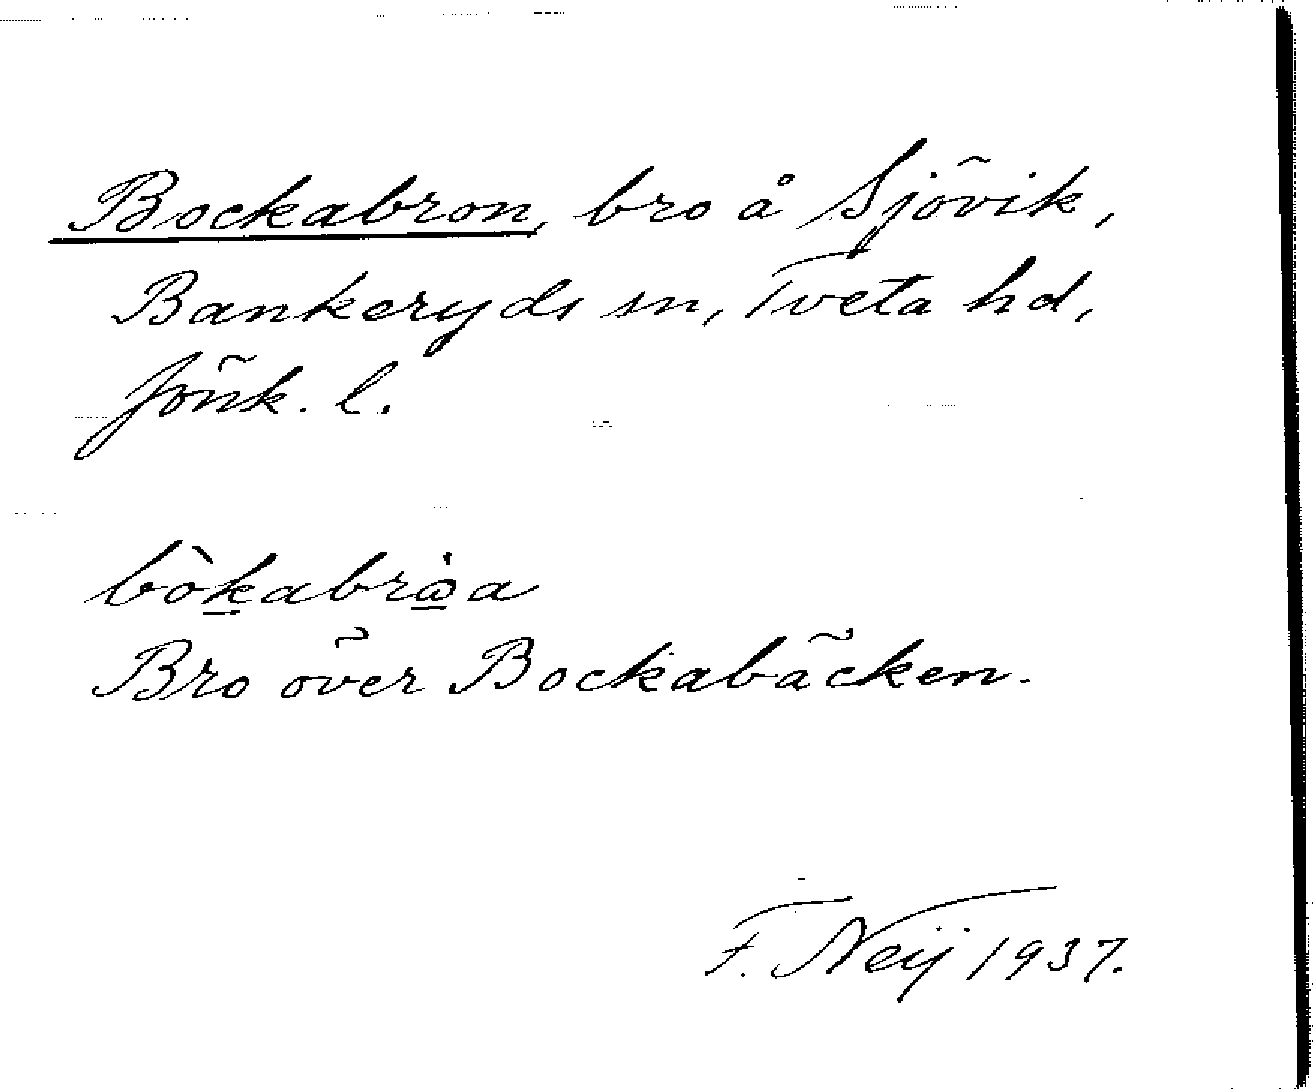 Bockabron, bro å Sjövik,
Bankeryds sn, Tveta hd,
Jönk. l.
bòkabròa
Bro över Bockabäcken.
F. Neij 1937.